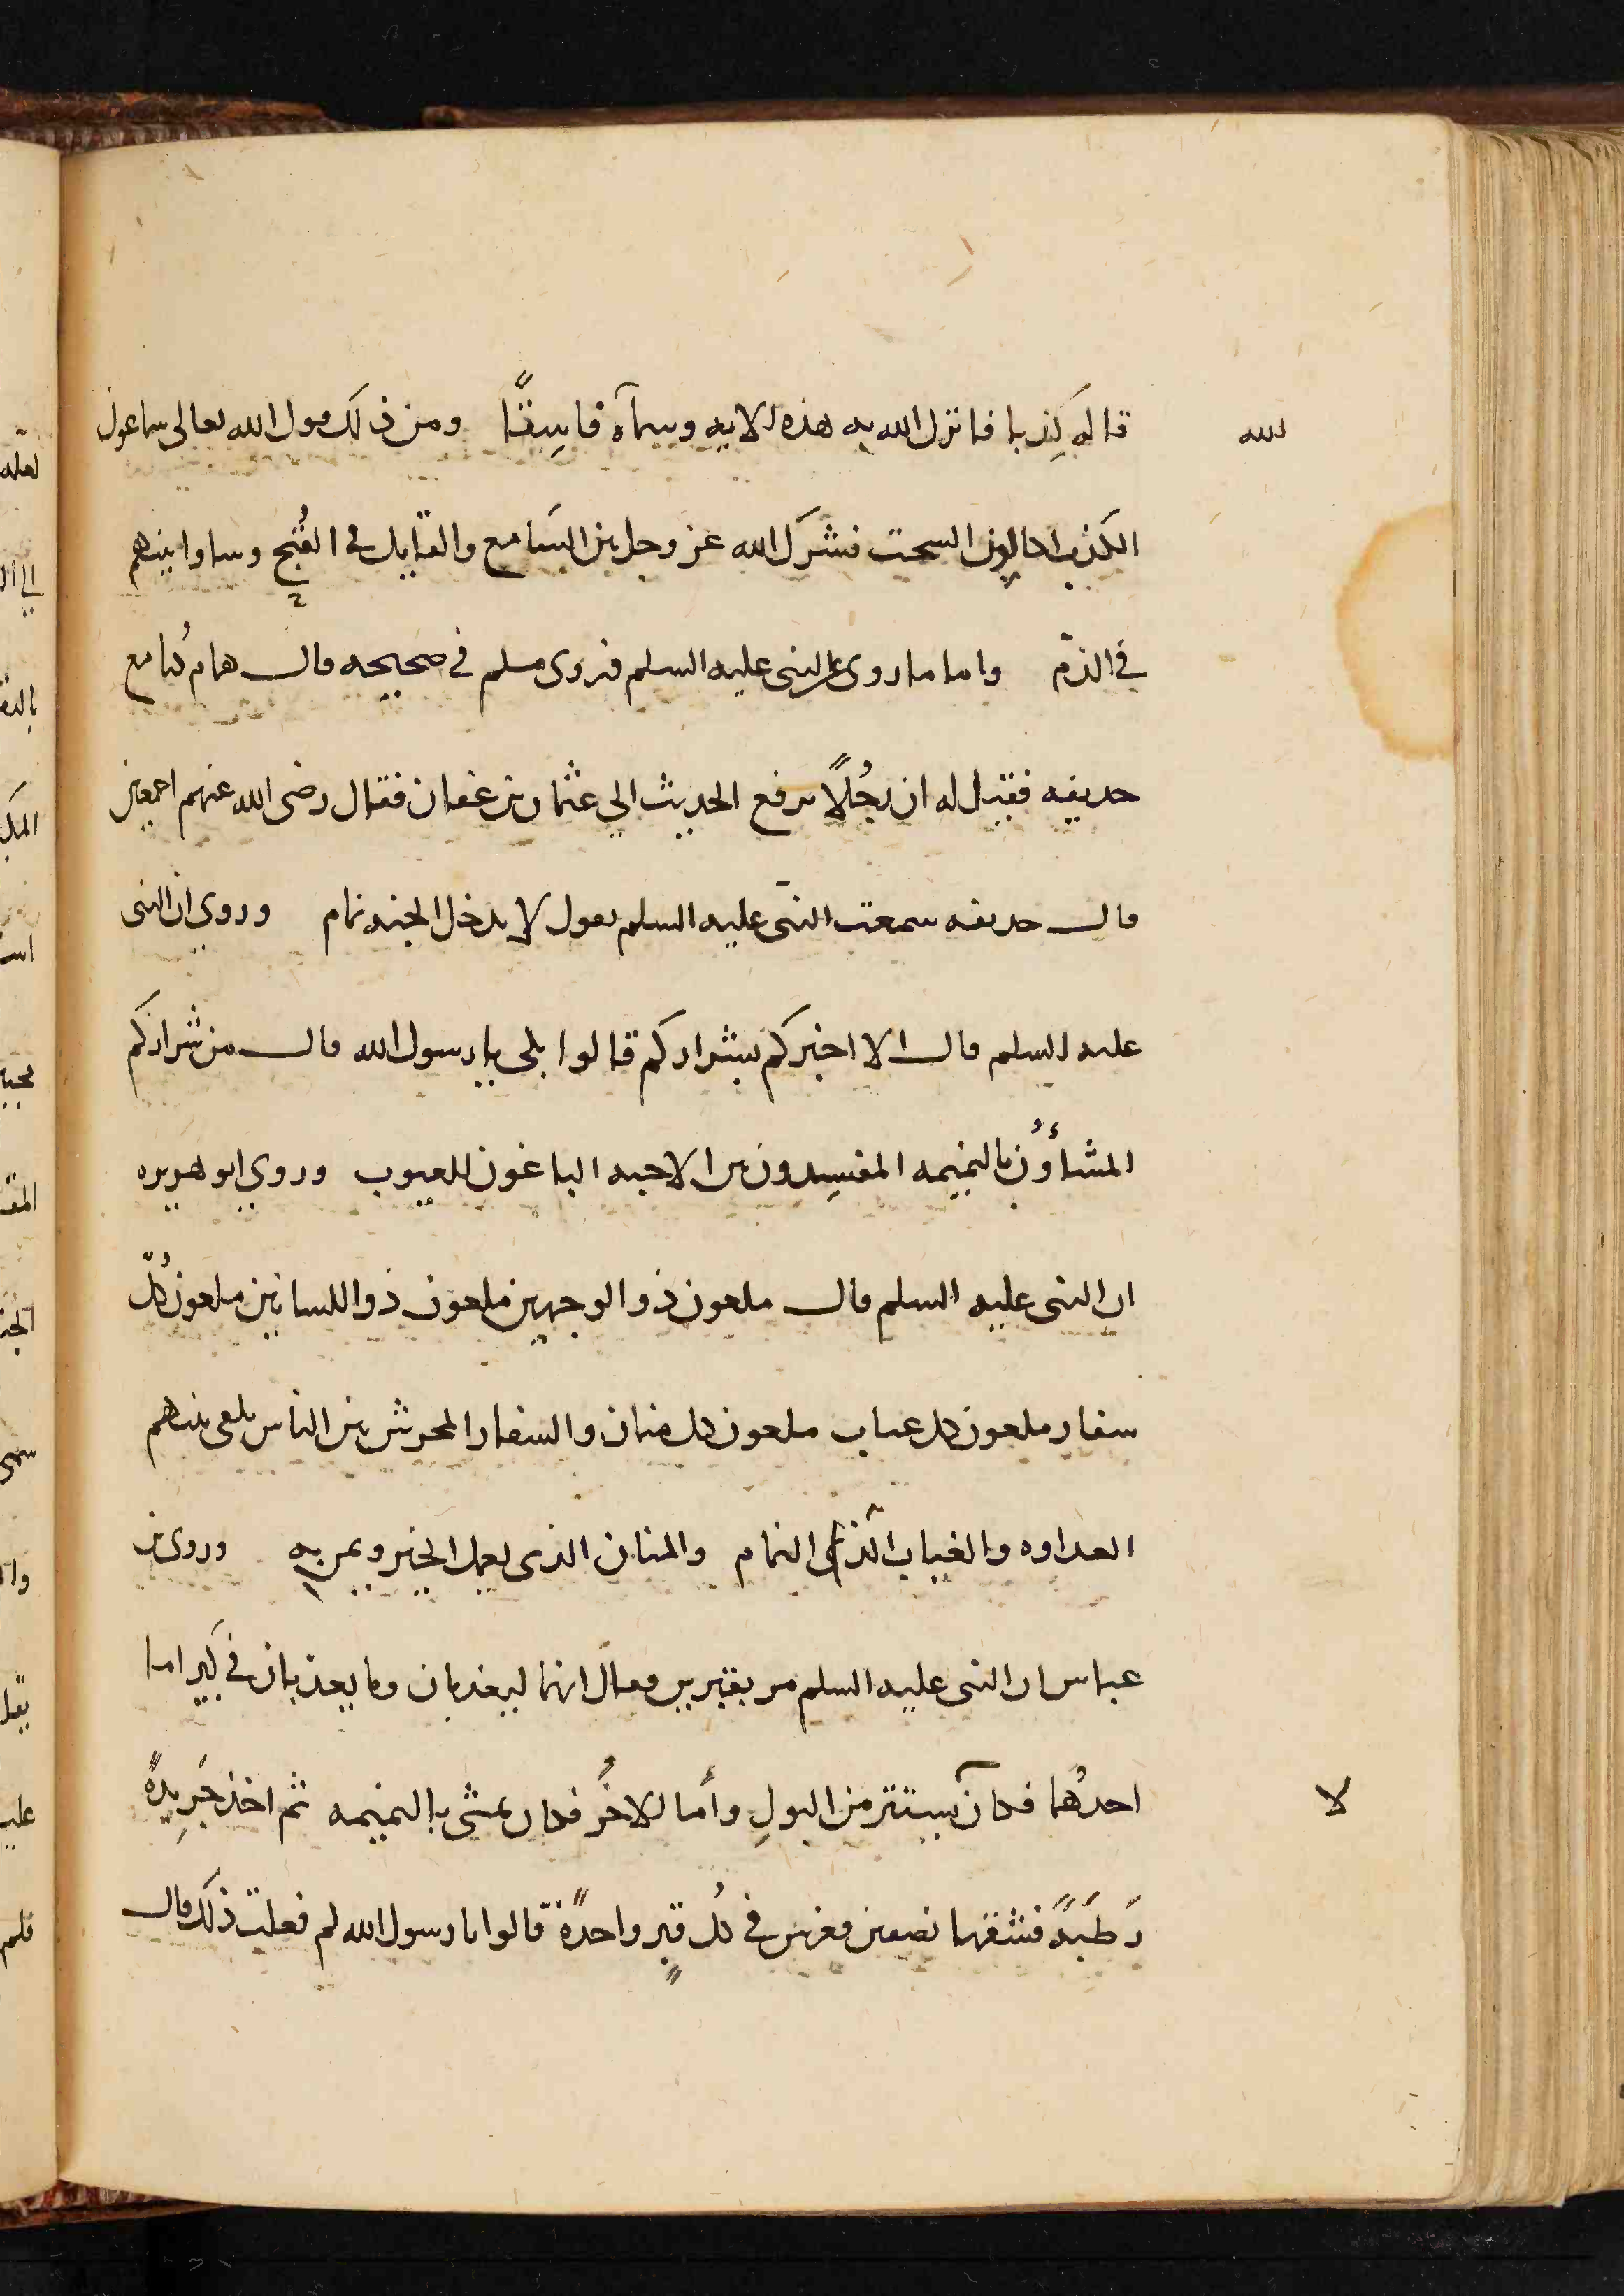 لله
قاله كَذبا فانزل الله به هذه الايه وسماه فاسِقًا ومن ذلك قول الله تعالى سماعون
الكذب اكالون السحت فشرك الله عز وجل بين السَامع والقايل في القُبح وساوا بينهم
في الذمّ واما ما روى عن النبي عليه السلم فروى مسلم في صحيحه قال همام كُنا مع
حذيفه فقيل له ان رجُلًا يرفع الحديث الي عثمان بن عفان فقال رضى الله عنهم اجمعين
قال حذيفه سمعت النبيّ عليه السلم يقول لا يدخل الجنه نمام وروي ان النبي
عليه السلم قال الا اخبركم بشراركم قالوا بلى يا رسول الله قال من شراركم
المشاؤُن بالنميمه المفسِدون بين الاحبه الباغون للعيوب وروي ابو هريره
ان النبي عليه السلم قال ملعون ذو الوجهين ملعون ذو اللسانين ملعون كُلّ
سفار ملعون كل عياب ملعون كل منان والسفار المحرش بين الناس يلقى بينهم
العداوه والغياب الذي النمام والمنان الذى يعمل الخير ويمن به وروى بن
عباس ان النبي عليه السلم مر بقبرين فقال انهما ليعذبان وما يعذبان في كبير اما
لا
احدُهما فكانَ يستتر من البولِ وأما الاخَرُ فكان يمشى بالنميمه ثم اخذ جَرِيدةً
رَطبَةً فشقها نصفين فغرس في كُل قبرٍ واحدةً قالوا يا رسول الله لم فعلت ذلك قال